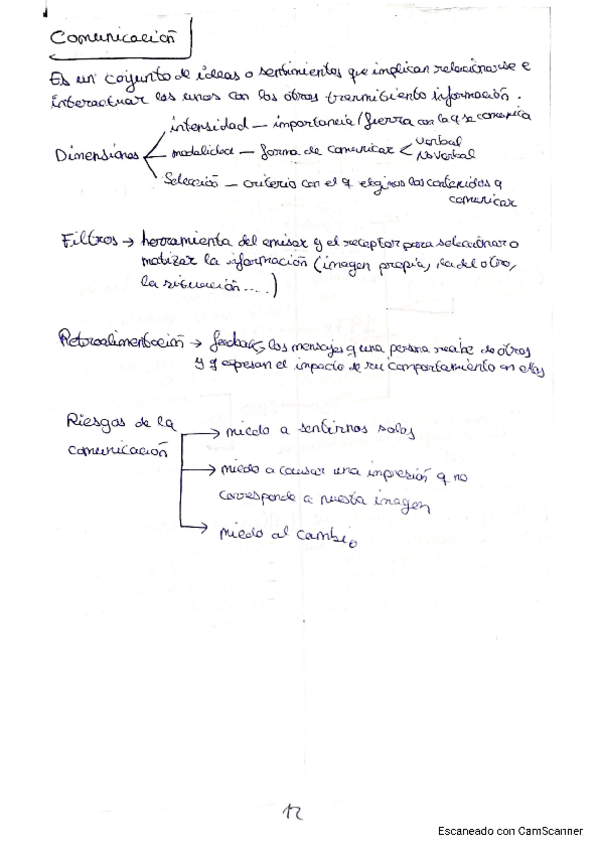 Comunicación
Es un conjunto de ideas o sentimientos que implican relacionarse e
interactuar los unos con los otros transmitiento información.
intensidad – importancia/fuerza con la q se comunica
Dimensiones modalidad – forma de comunicar < verbal
No verbal
Selección – criterio con el q elegimos los contenidos a
comunicar
Filtros → herramienta del emisor y el receptor para seleccionar o
matizar la información (imagen propia, la del otro,
la situación....)
Retroalimentación → feedback, los mensajes q una persona recibe de otros
y q expresan el impacto de su comportamiento en ellos
Riesgos de la
comunicación
→ miedo a sentirnos solos
→ miedo a causar una impresión q no
corresponde a nuesta imagen
→ miedo al cambio
12
Escaneado con CamScanner